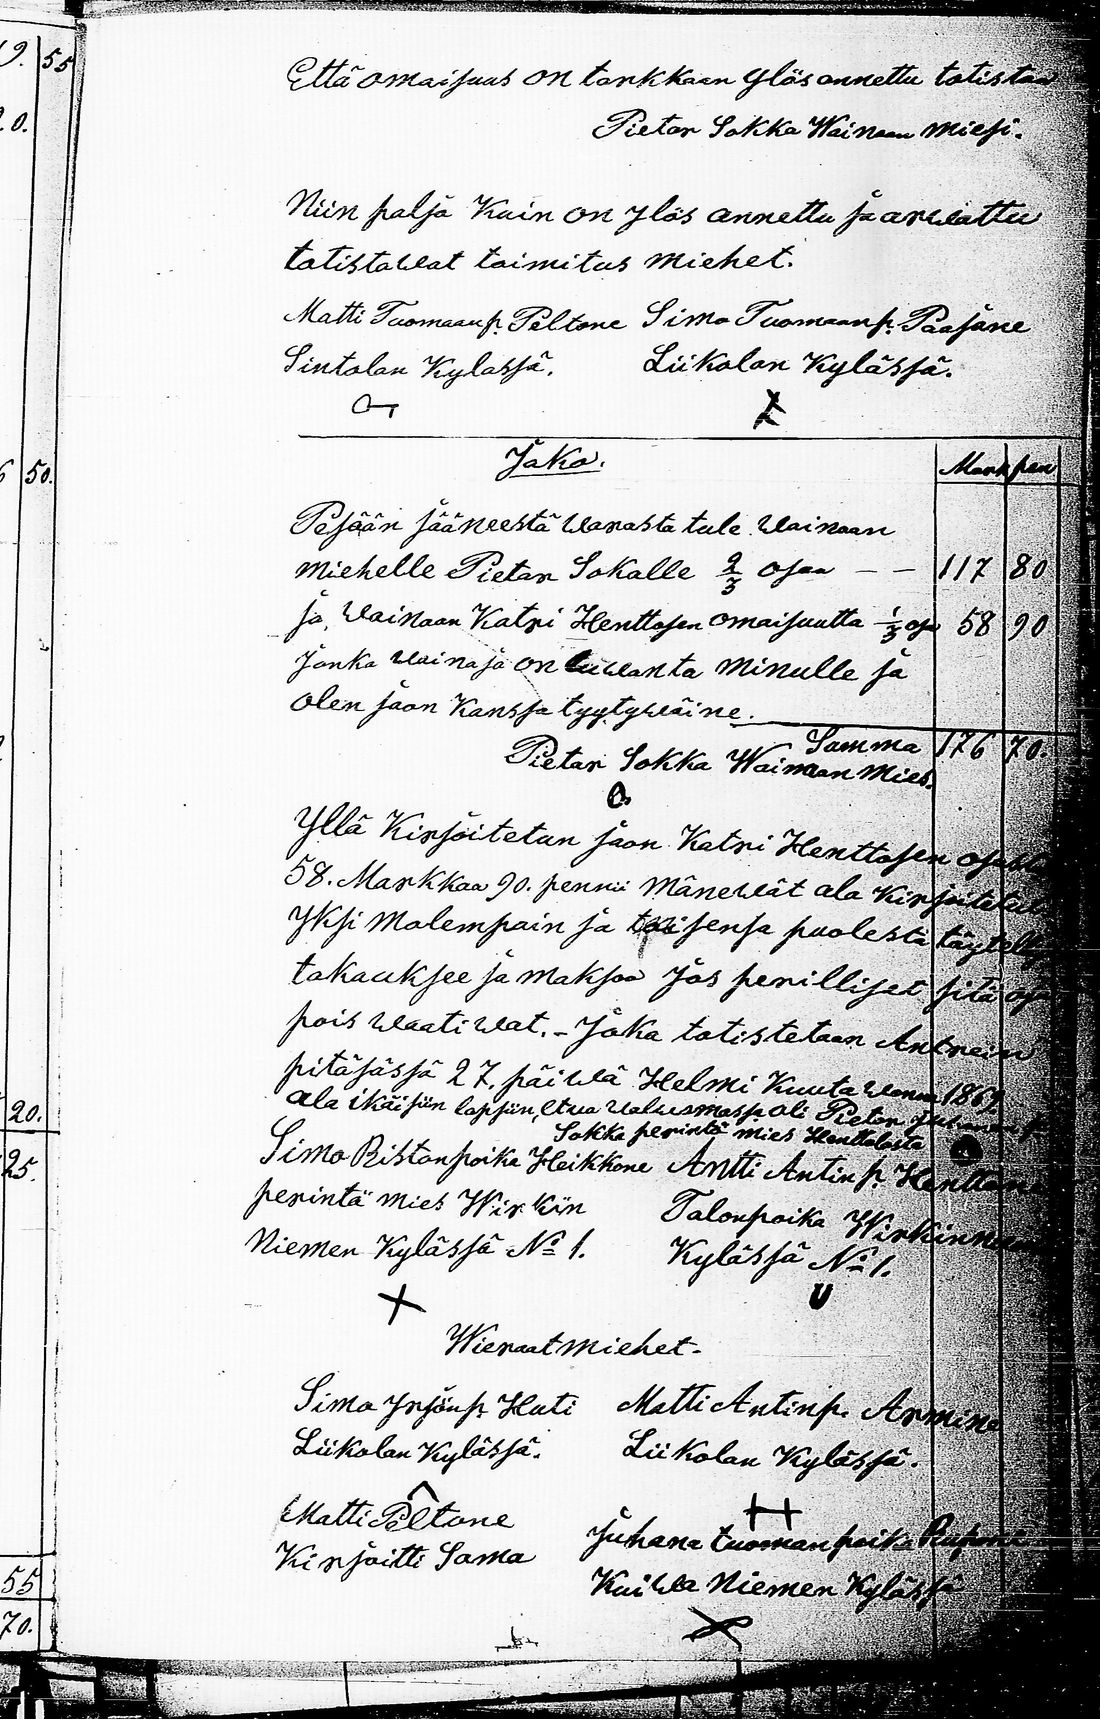 9. 55
20.
Että omaisuus on tarkkaan ylös annettu totistaa
Pietar Sokka Wainaan miesi.
Niin paljo Kuin on ylös annettu ja arwattu
totistawat toimitus miehet.
Matti Tuomaanp. Peltone Simo Tuomaanp. Paajane
Sintolan Kylässä. Liikolan Kylässä.
50.
Jako. Mark pen
Pesään jääneestä warasta tule wainaan
miehelle Pietar Sokalle 2/3 osaa — — 117 80
ja, wainaan Katri Henttosen omaisuutta 1/3 osa 58 90
Jonka wainaja on luwanta minulle ja
olen jaon Kanssa tyytywäine.
Samma 176 70.
Pietar Sokka Wainaan Mies.
Yllä Kirjoitetun jaon Katri Henttosen osasta
58. Markkaa 90. pennii mänewät ala Kirjoitetut
Yksi Molempain ja toisensa puolesta täytellis
takauksee ja maksoa Jos perilliset sitä osa
pois waatiwat. - Joka totistetaan Antrein
pitäjässä 27. päiwä Helmi Kuuta wonna 1869.
ala ikäisiin lapsiin, etua walwomassa oli Pietar Juhanan p.
Sokka perintö mies Henttolasta
Simo Ristonpoika Heikkone Antti Antinp. Henttone
perintö mies Wirkin Talonpoika Wirkinniemen
Niemen Kylässä No 1. Kylässä No 1.
20.
25.
Wieraat miehet.
Simo Yrjönp. Huti Matti Antinp. Armine
Liikolan Kylässä. Liikolan Kylässä.
Matti Peltone Juhana tuomanpoika
Kirjoitti Sama Kaiwa Niemen Kylässä
55
70.